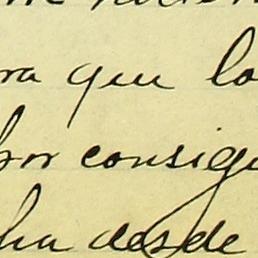 ra que lo
por consigu
ha desde